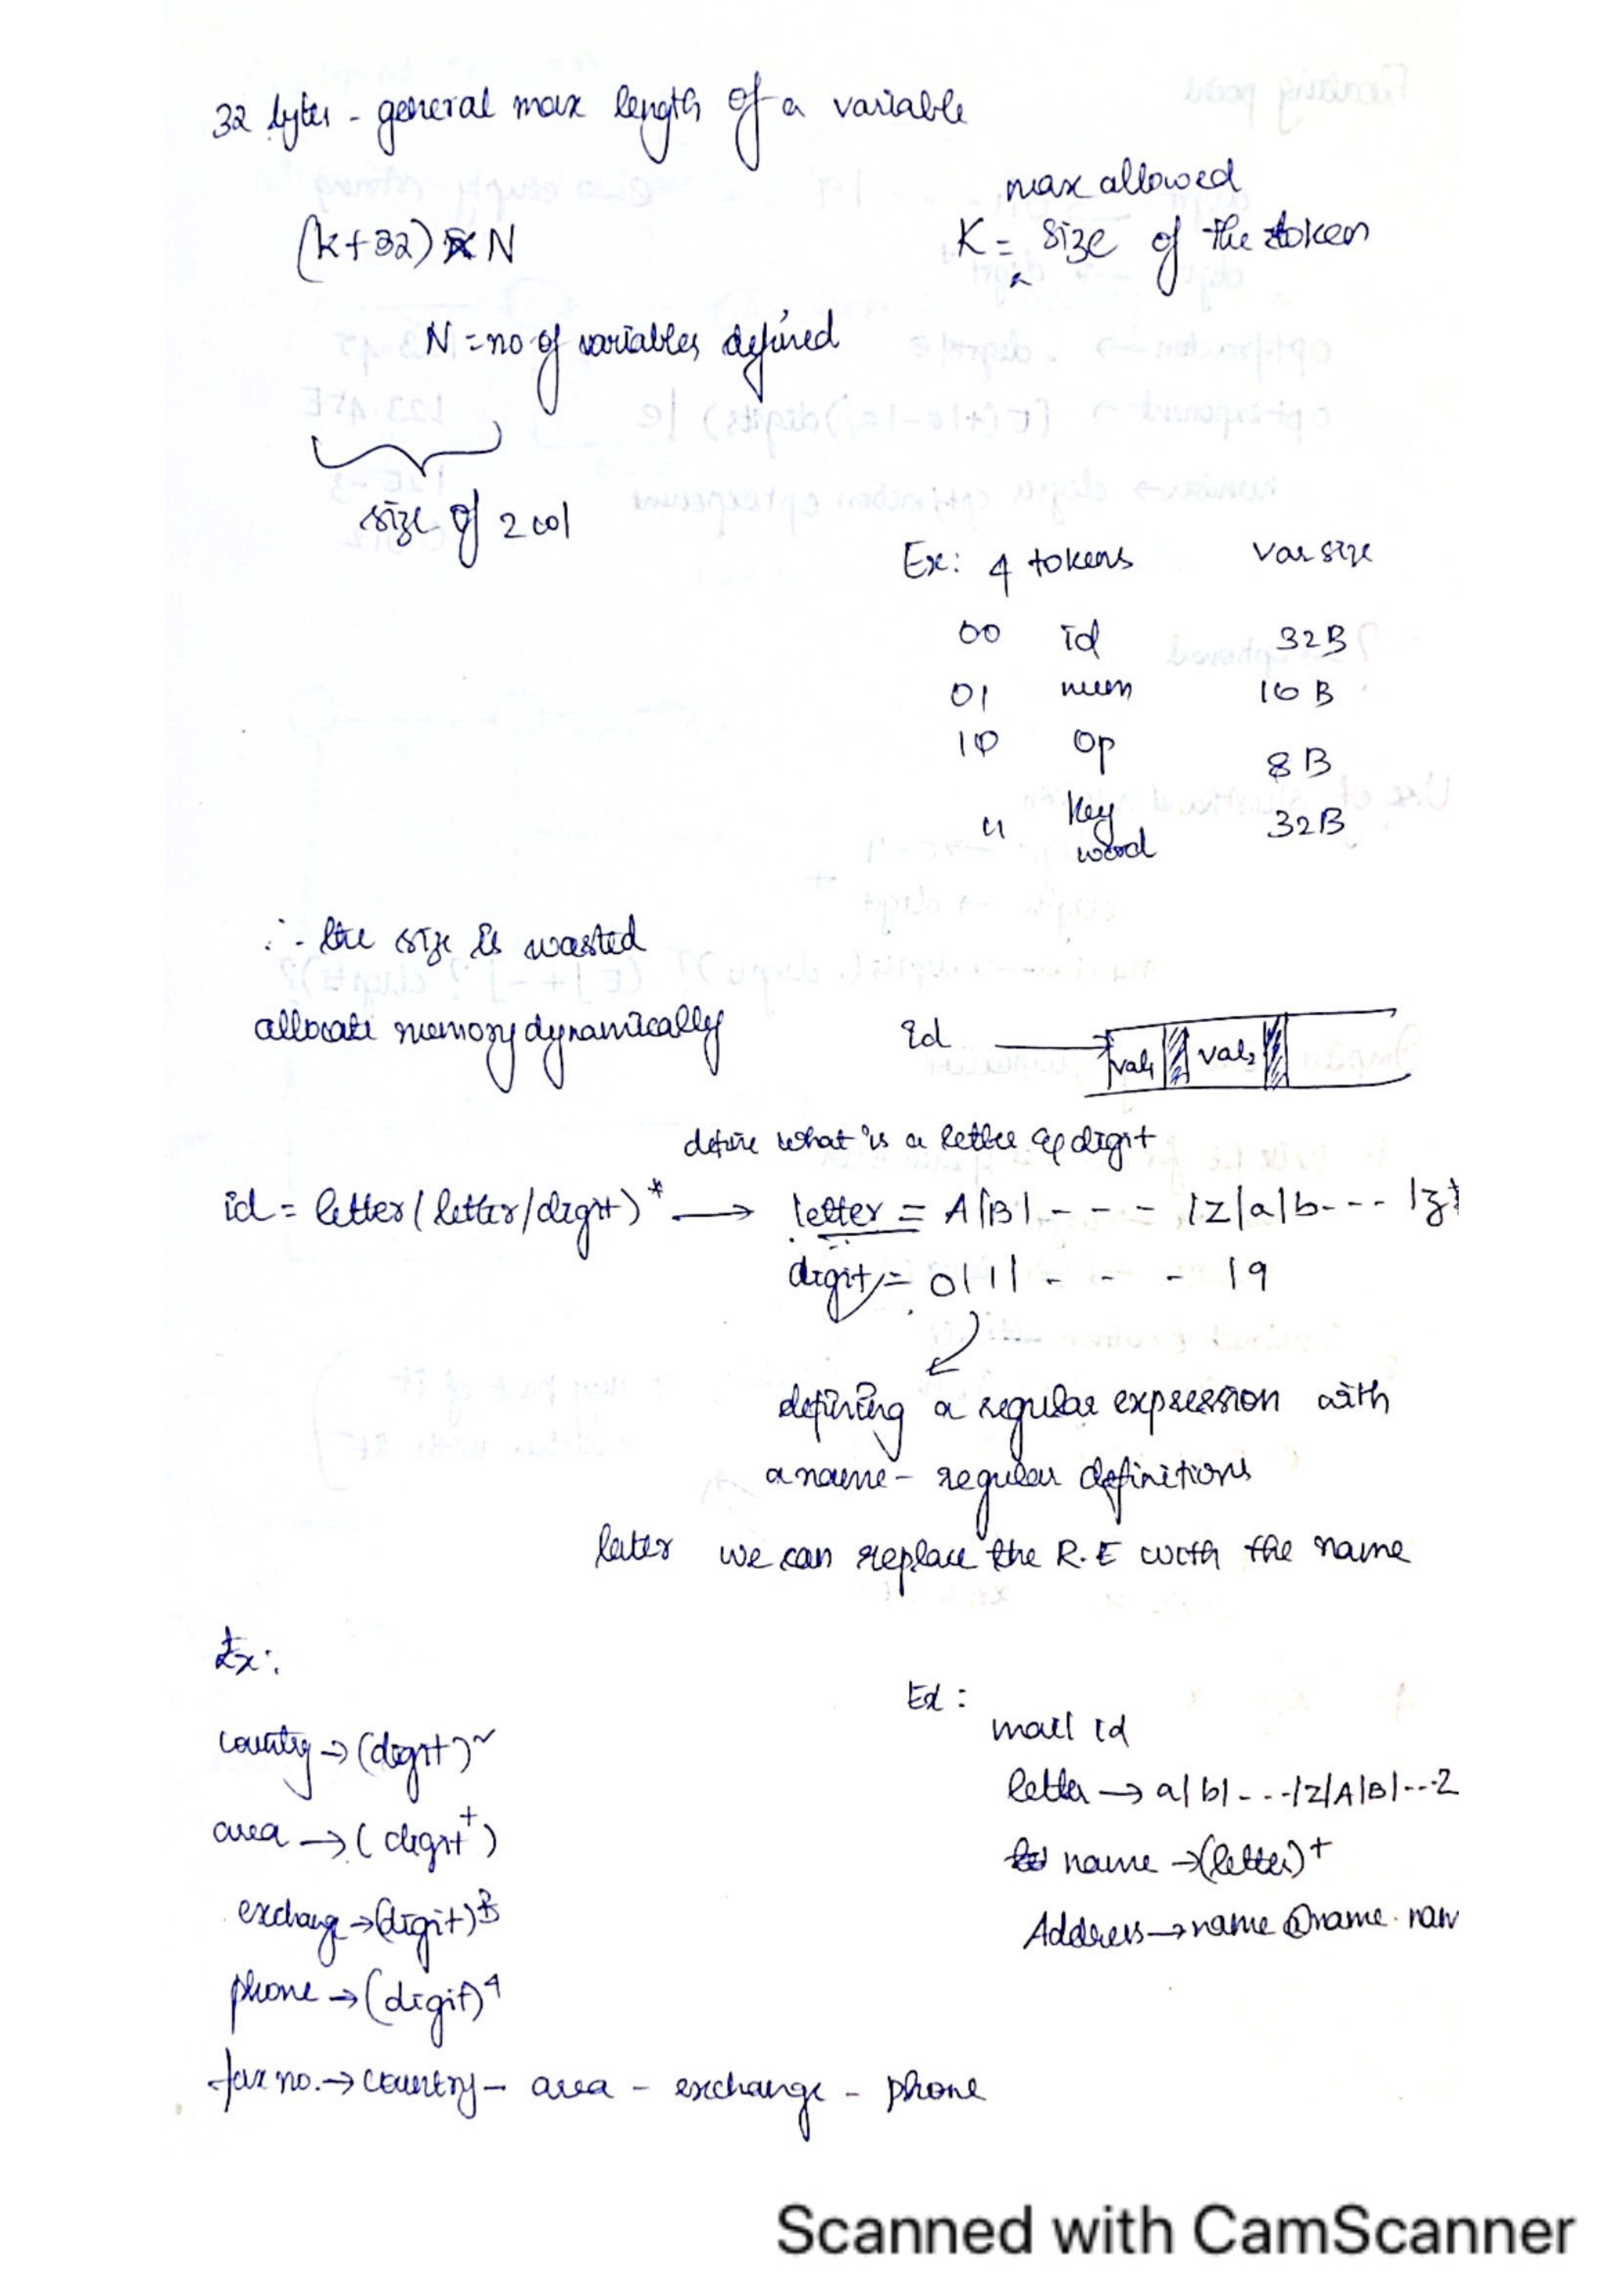 32 bytes - general max length of a variable
(k+32) * N
max allowed
K = size of the token
N = no of variables defined
size of 2 col
Ex: 4 tokens Var size
00 id 32B
01 num 16B
10 op 8B
11 key word 32B
∴ the size is wasted
allocate memory dynamically
id
val1 val2
define what is a letter & digit
id = letter (letter/digit)* → letter = A|B| - - - |Z|a|b - - - |z
digit = 0|1| - - - |9
defining a regular expression with
a name - regular definitions
later we can replace the R.E with the name
Ex:
country → (digit)2
area → (digit+)
exchange → (digit)3
phone → (digit)4
fax no. → country - area - exchange - phone
Ex:
mail id
letter → a|b| - - - |z|A|B| - - - Z
name → (letter)+
Address → name @ name . nam
Scanned with CamScanner